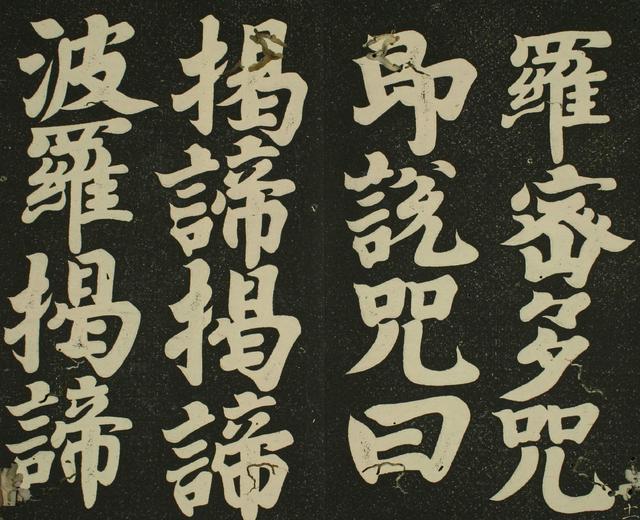 羅密多咒
即説咒曰
揭諦揭諦
波羅揭諦